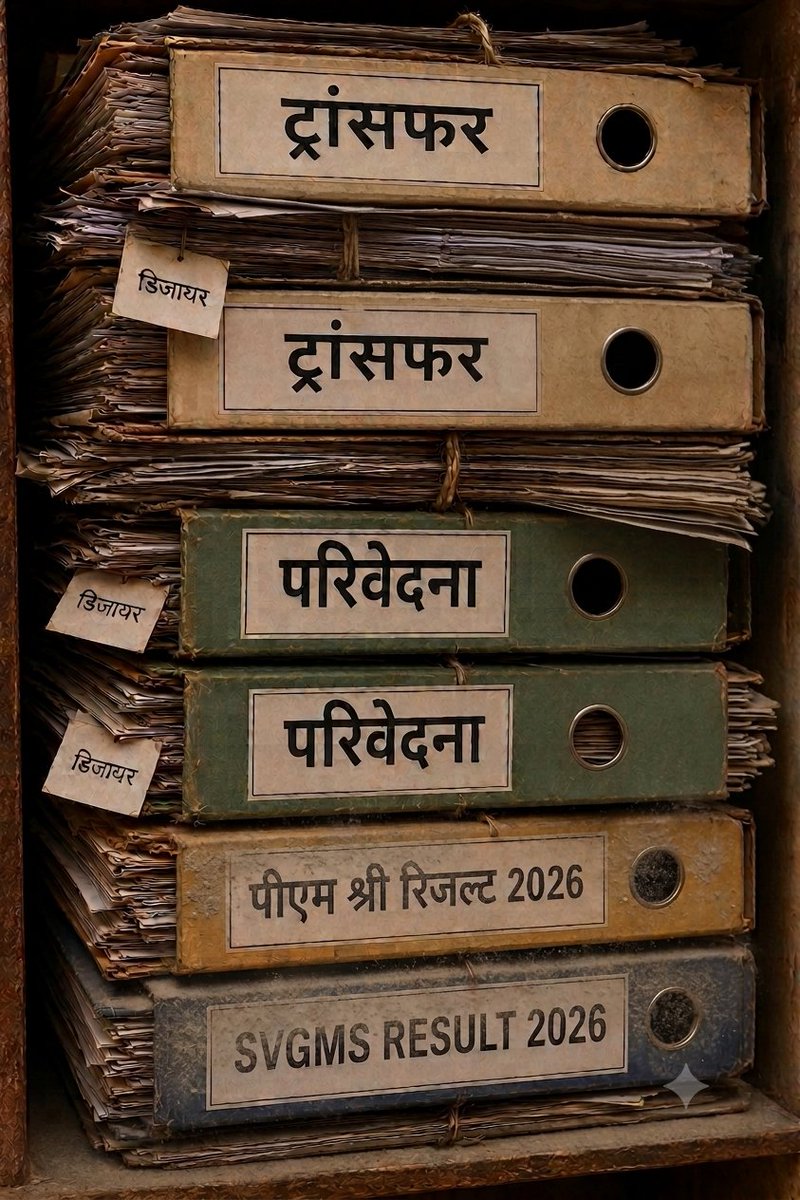 ट्रांसफर
डिजायर
ट्रांसफर
परिवेदना
डिजायर
परिवेदना
डिजायर
पीएम श्री रिजल्ट 2026
SVGMS RESULT 2026